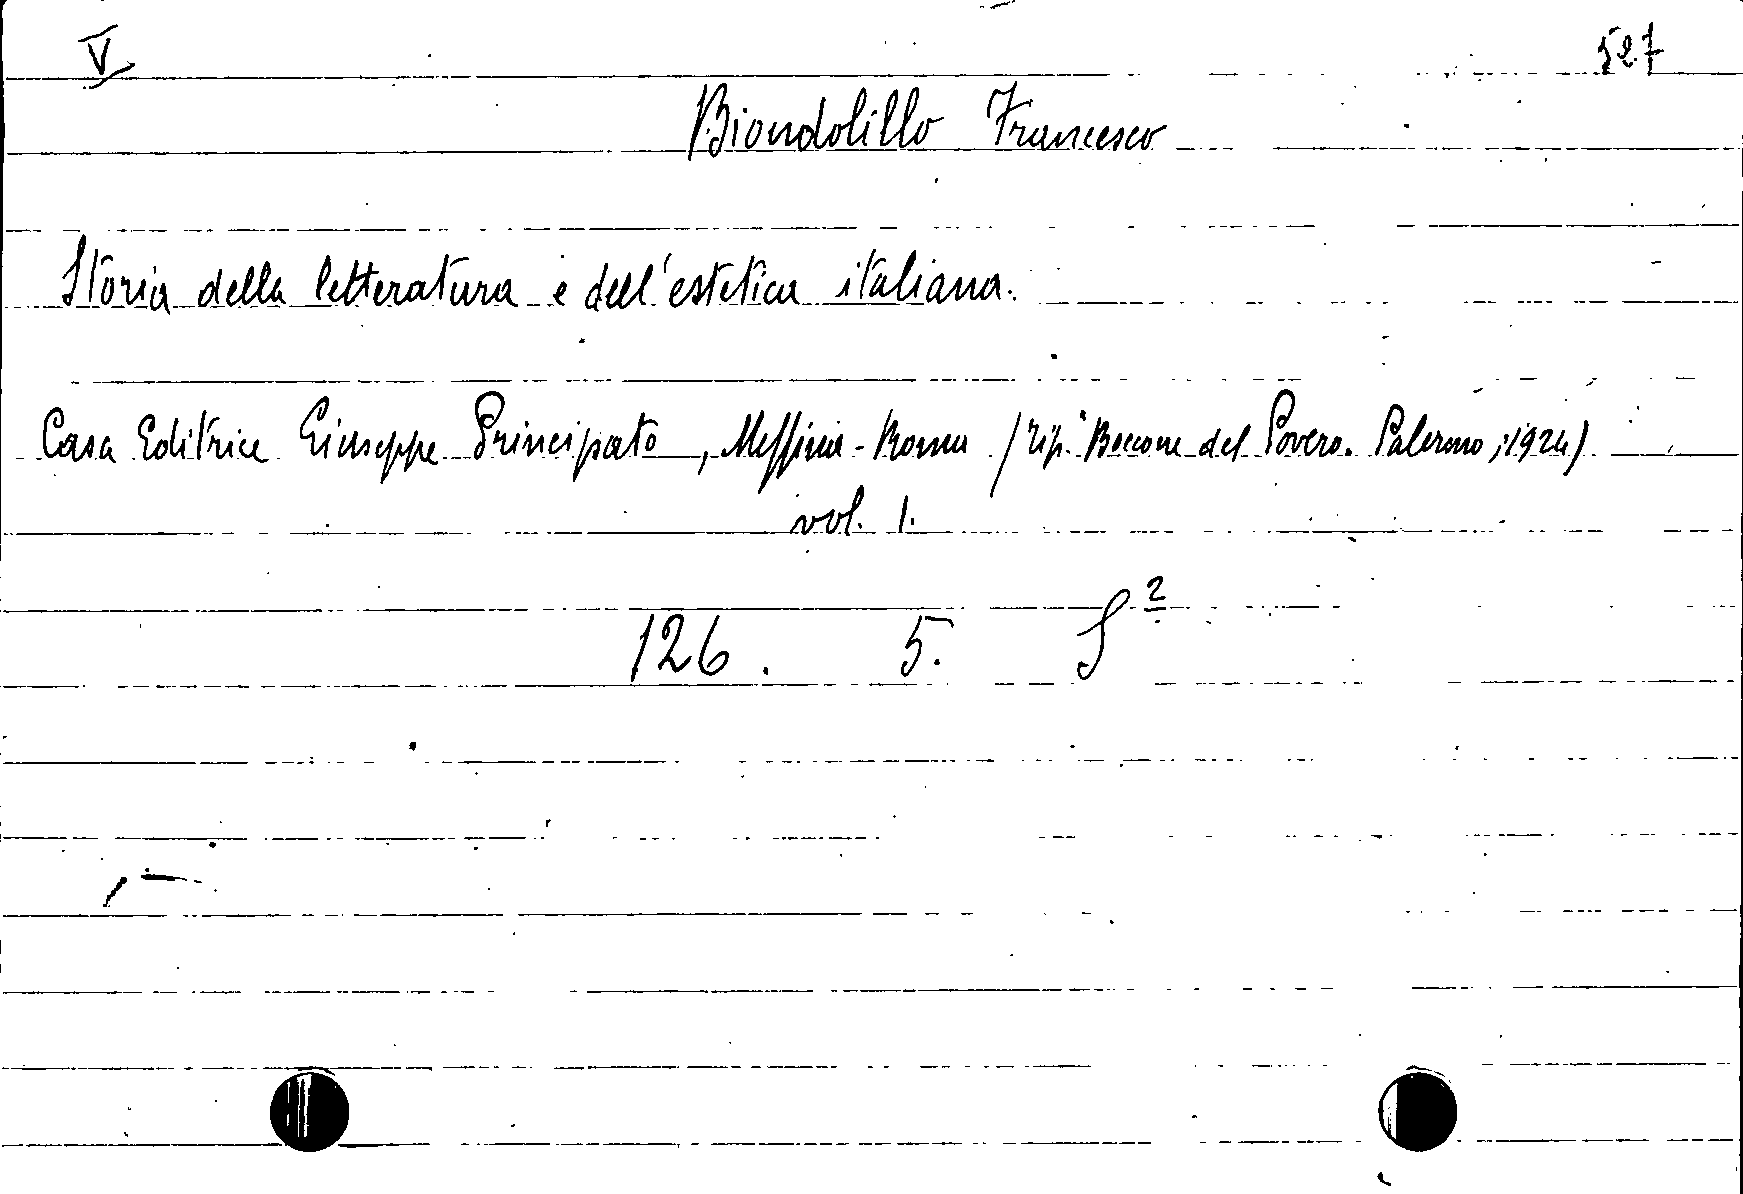 V 527
Biondolillo Francesco
Storia della letteratura e dell'estetica italiana.
Casa Editrice Giuseppe Principato, Messina-Roma (Tip. Boccone del Povero. Palermo, 1924)
vol. 1.
126. 5. S 2